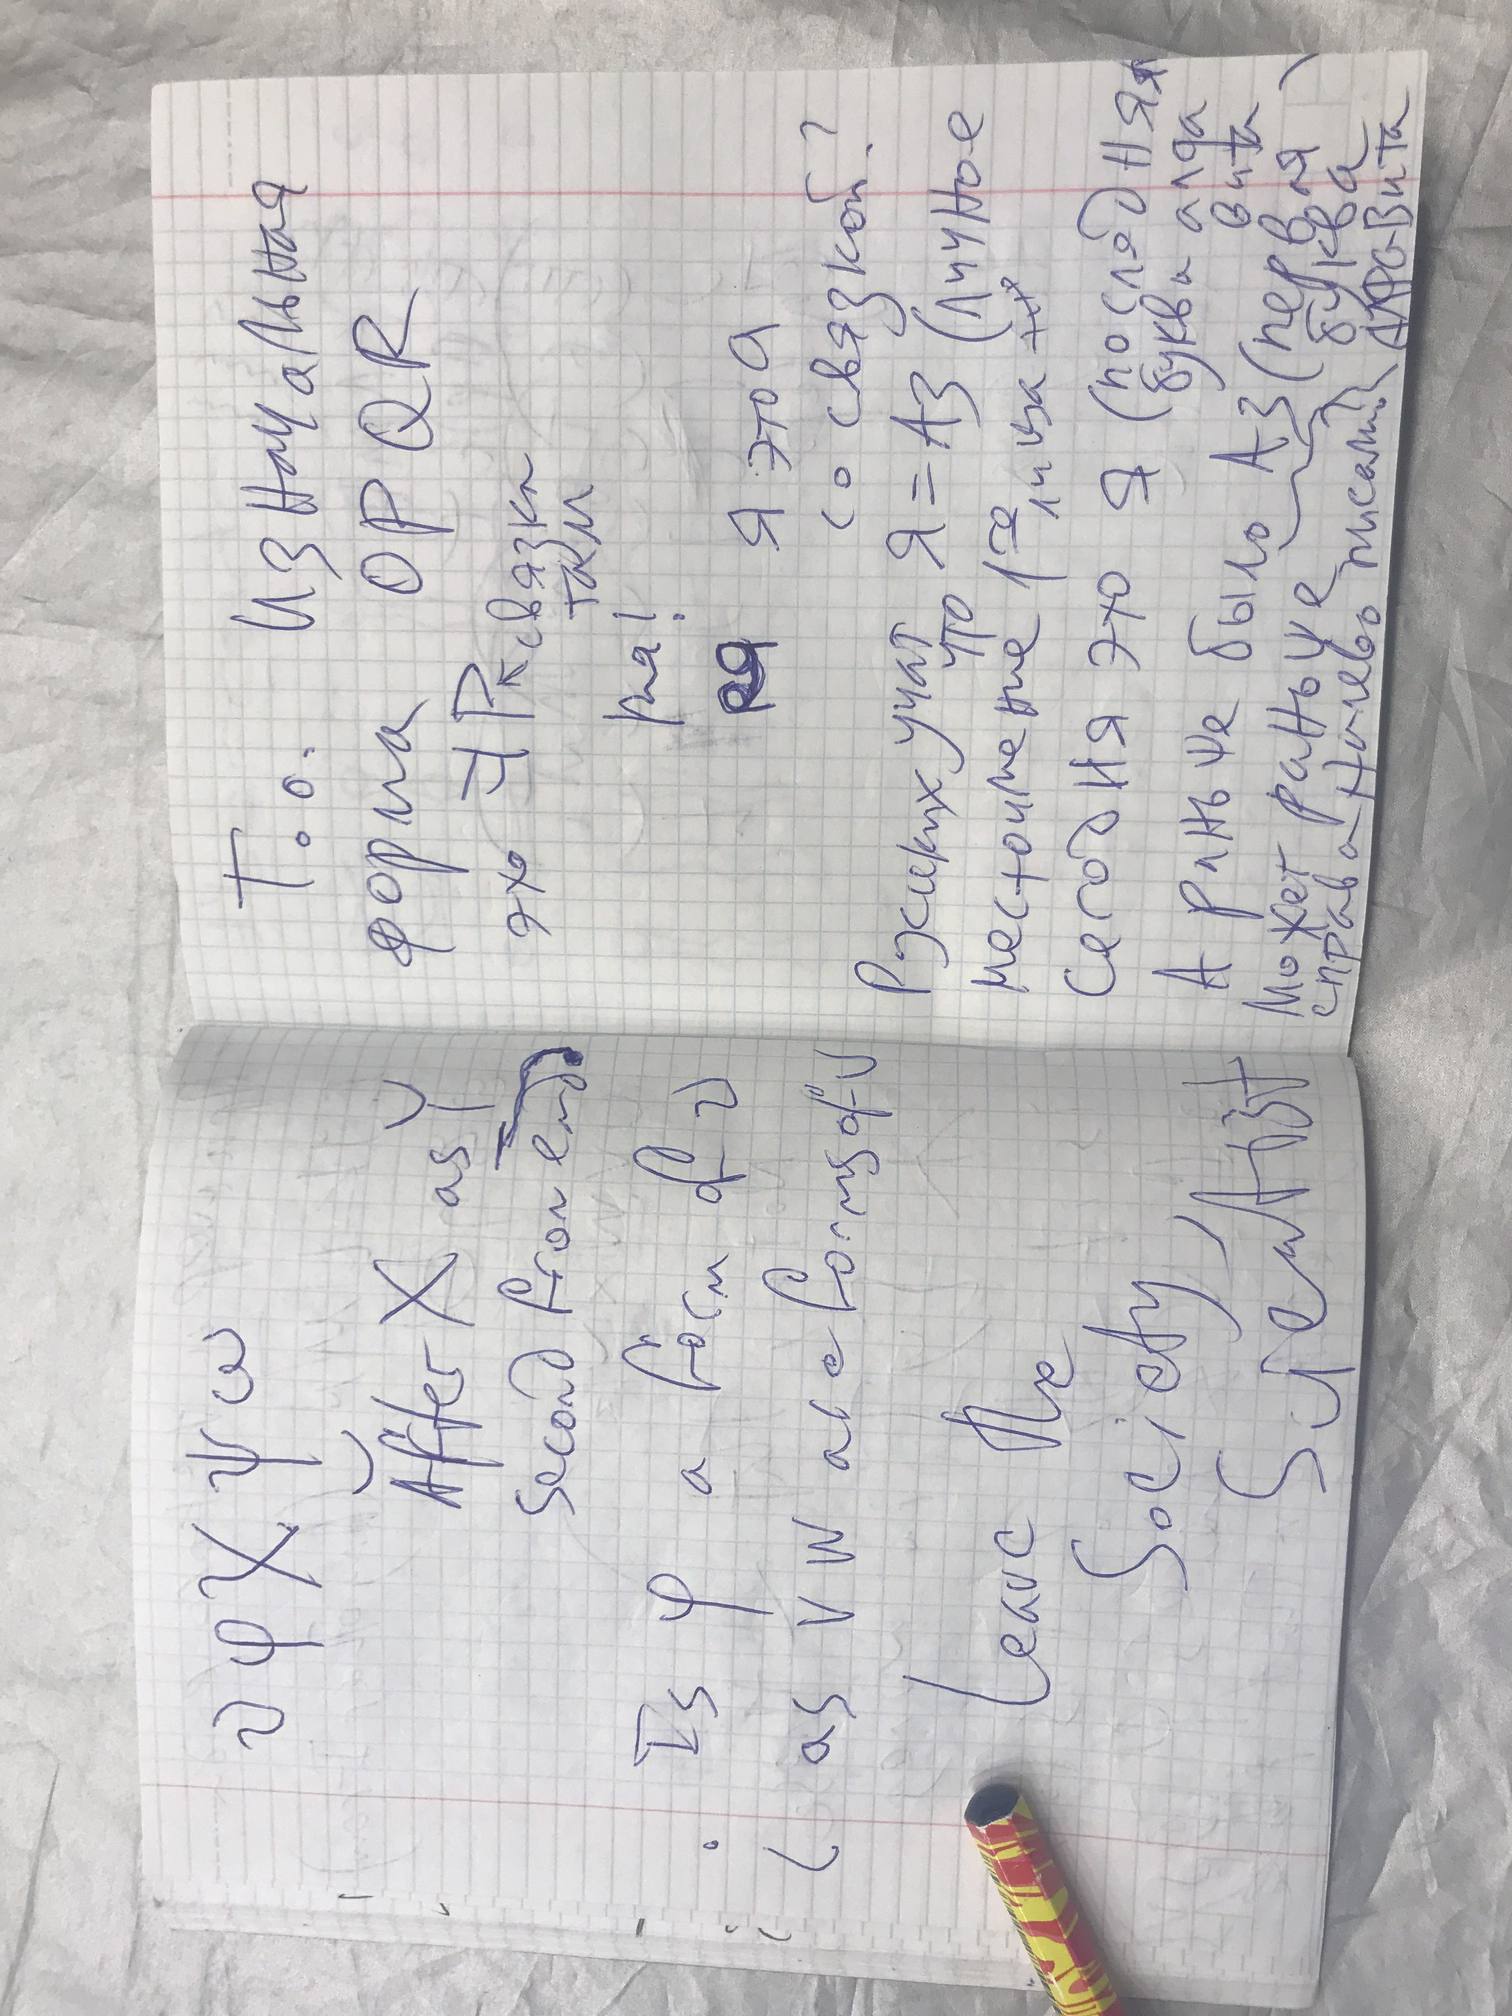 υ φ χ ψ ω
After X as Y
second from end
Is φ a form of υ
as V W are forms of U
Leave the
Society
Scientist
Т.о. Изначальная
форма O P Q R
это ᖷP связка
там
ра!
Я я это Я
со связкой?
Русских учат
что Я = АЗ (личное
местоимение 1го лица
Сегодня это Я (последняя
буква алфа
вита
А раньше было АЗ (первая
буква
алфавита)
Может раньше
справа-налево писали?